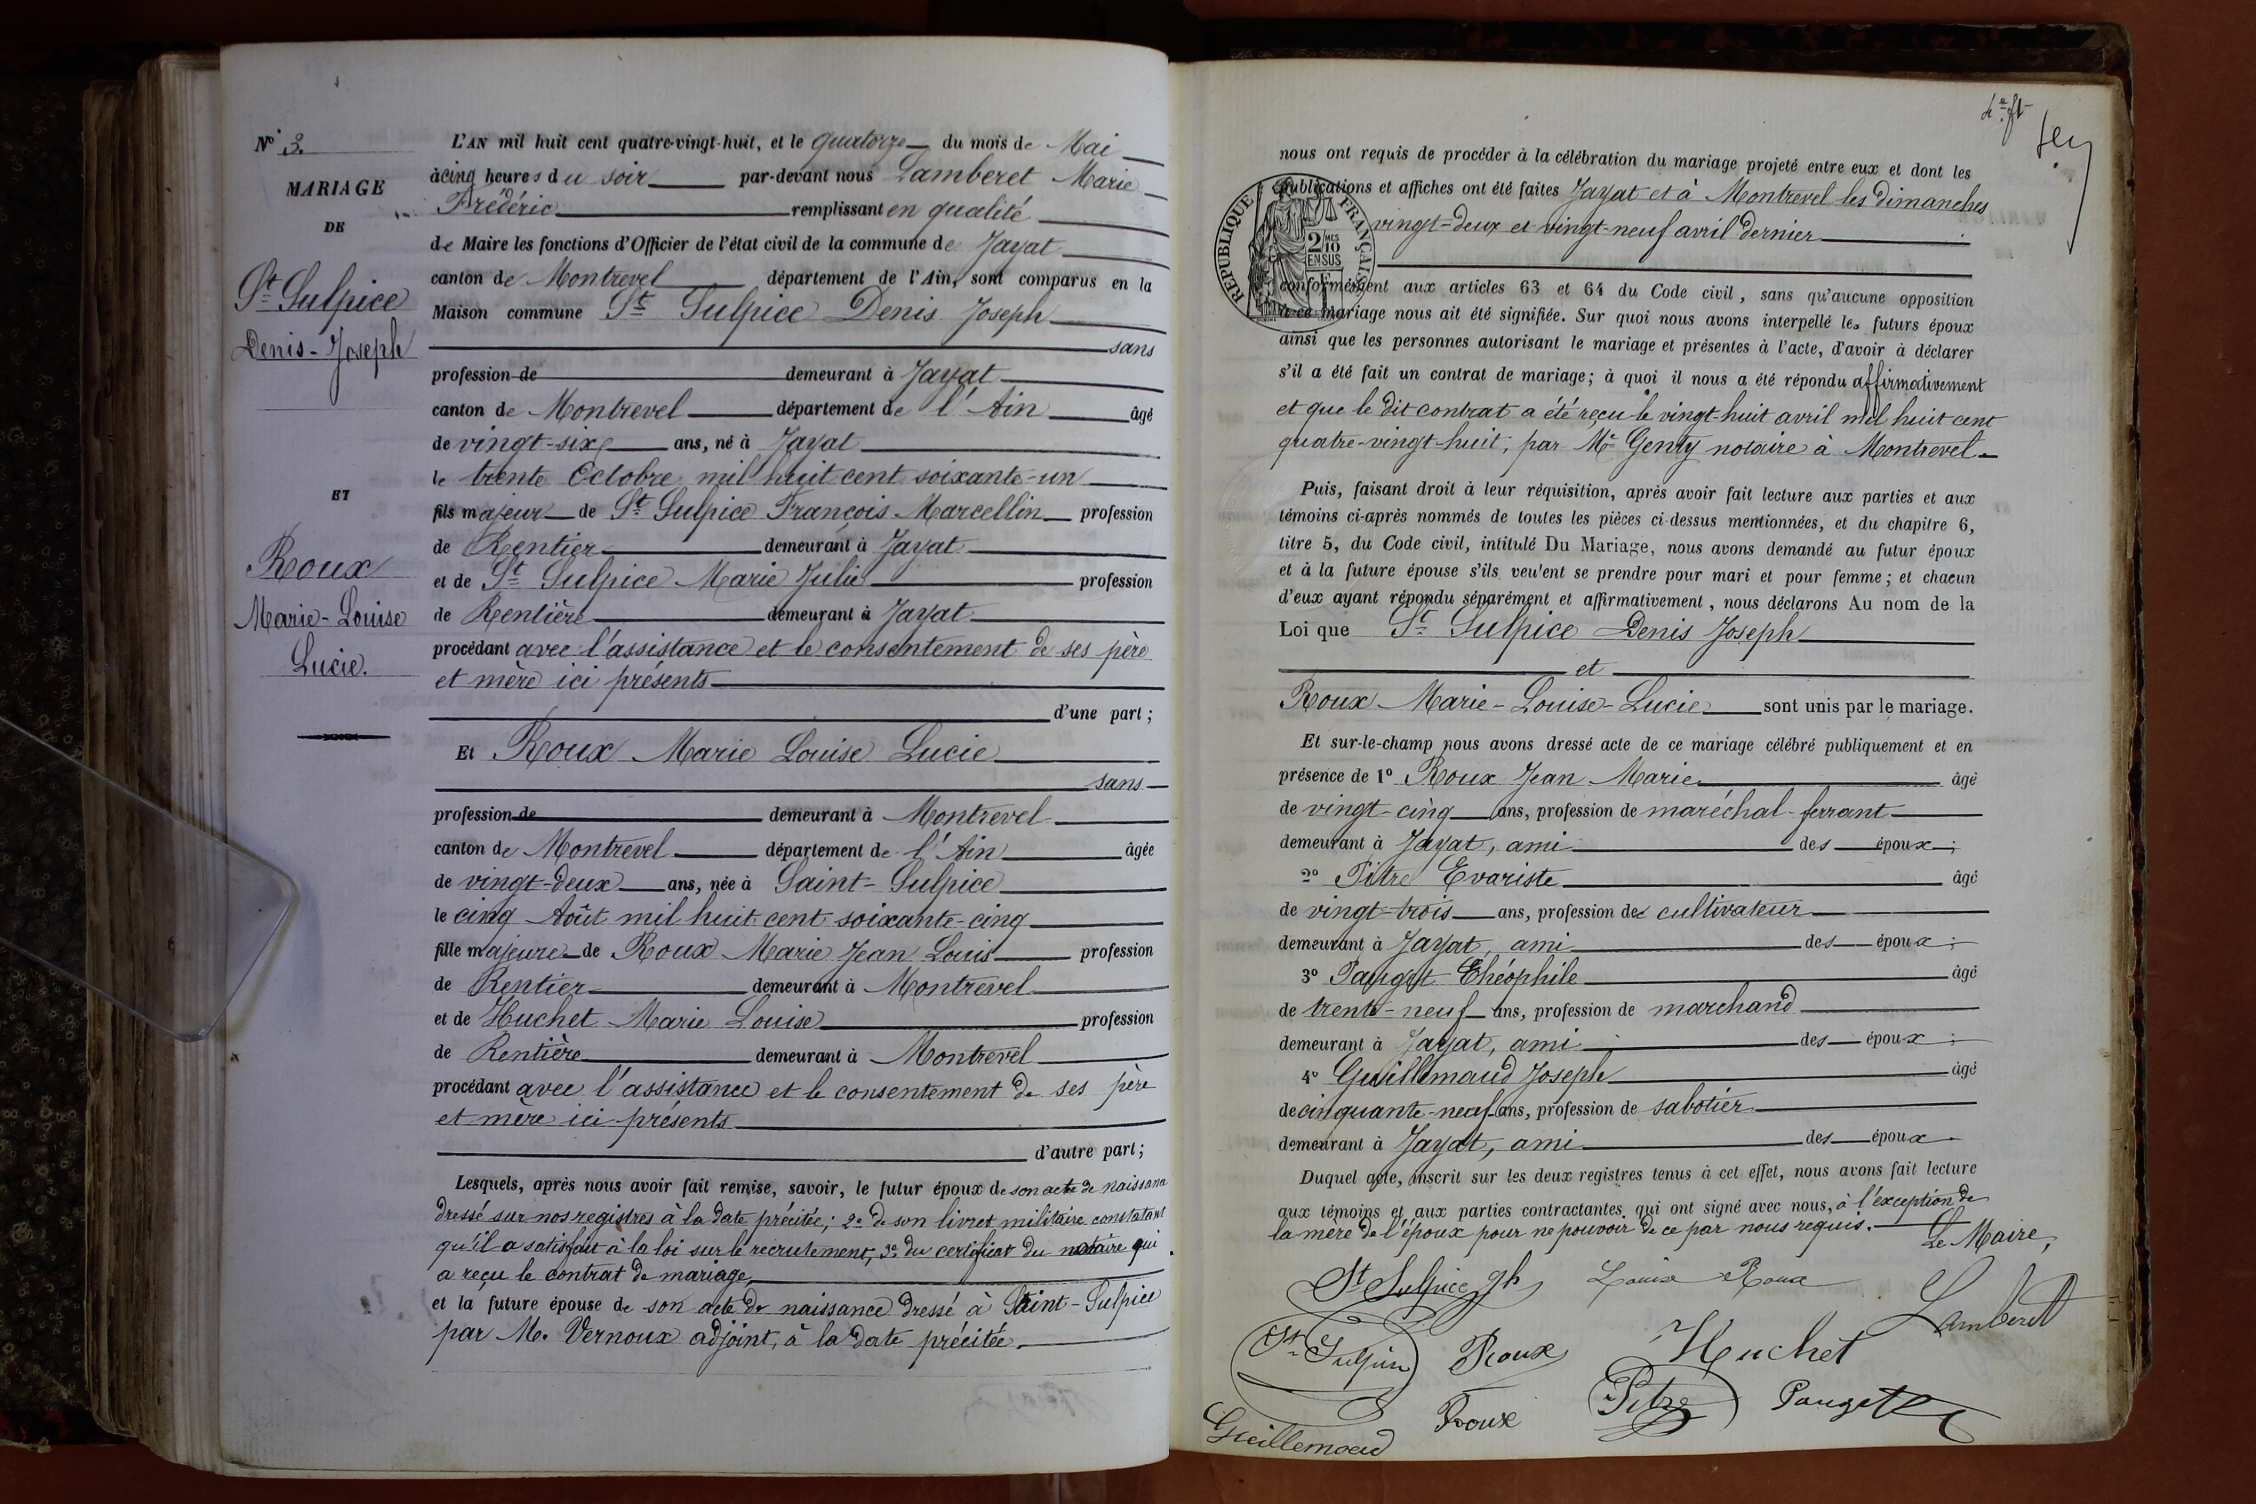 N° 3.
MARIAGE
DE
St Sulpice
Denis-Joseph
ET
Roux
Marie-Louise
Lucie.
L'AN mil huit cent quatre-vingt-huit, et le quatorze du mois de Mai
à cinq heures du soir par-devant nous Lamberet Marie
Frédéric remplissant en qualité
de Maire les fonctions d'Officier de l'état civil de la commune de Jayat
canton de Montrevel département de l'Ain, sont comparus en la
Maison commune St Sulpice Denis Joseph
sans
profession de demeurant à Jayat
canton de Montrevel département de l'Ain âgé
de vingt-six ans, né à Jayat
le trente Octobre mil huit cent soixante-un
fils majeur de St Sulpice François-Marcellin profession
de Rentier demeurant à Jayat
et de St Sulpice Marie Julie profession
de Rentière demeurant à Jayat
procédant avec l'assistance et le consentement de ses père
et mère ici présents
d'une part;
Et Roux Marie Louise Lucie
sans
profession de demeurant à Montrevel
canton de Montrevel département de l'Ain âgée
de vingt-deux ans, née à Saint-Sulpice
le cinq Août mil huit cent soixante-cinq
fille majeure de Roux Marie Jean Louis profession
de Rentier demeurant à Montrevel
et de Huchet Marie Louise profession
de Rentière demeurant à Montrevel
procédant avec l'assistance et le consentement de ses père
et mère ici présents
d'autre part;
Lesquels, après nous avoir fait remise, savoir, le futur époux de son acte de naissance
dressé sur nos registres à la date précitée; 2° de son livret militaire constatant
qu'il a satisfait à la loi sur le recrutement, 3° du certificat du notaire qui
a reçu le contrat de mariage
et la future épouse de son acte de naissance dressé à Saint-Sulpice
par M. Vernoux adjoint, à la date précitée.
nous ont requis de procéder à la célébration du mariage projeté entre eux et dont les
publications et affiches ont été faites Jayat et à Montrevel les dimanches
vingt-deux et vingt-neuf avril dernier
RÉPUBLIQUE FRANÇAISE
2/10 MES
EN SUS
conformément aux articles 63 et 64 du Code civil, sans qu'aucune opposition
à ce mariage nous ait été signifiée. Sur quoi nous avons interpellé les futurs époux
ainsi que les personnes autorisant le mariage et présentes à l'acte, d'avoir à déclarer
s'il a été fait un contrat de mariage; à quoi il nous a été répondu affirmativement
et que le dit contrat a été reçu le vingt-huit avril mil huit cent
quatre-vingt-huit, par Me Genty notaire à Montrevel
Puis, faisant droit à leur réquisition, après avoir fait lecture aux parties et aux
témoins ci-après nommés de toutes les pièces ci-dessus mentionnées, et du chapitre 6,
titre 5, du Code civil, intitulé Du Mariage, nous avons demandé au futur époux
et à la future épouse s'ils veulent se prendre pour mari et pour femme; et chacun
d'eux ayant répondu séparément et affirmativement, nous déclarons Au nom de la
Loi que St Sulpice Denis Joseph
et
Roux Marie-Louise-Lucie sont unis par le mariage.
Et sur-le-champ nous avons dressé acte de ce mariage célébré publiquement et en
présence de 1° Roux Jean Marie âgé
de vingt-cinq ans, profession de maréchal-ferrant
demeurant à Jayat, ami des époux;
2° Pitre Evariste âgé
de vingt-trois ans, profession de cultivateur
demeurant à Jayat, ami des époux;
3° Pauget Théophile âgé
de trente-neuf ans, profession de marchand
demeurant à Jayat, ami des époux;
4° Guillemaud Joseph âgé
de cinquante-neuf ans, profession de sabotier
demeurant à Jayat, ami des époux.
Duquel acte, inscrit sur les deux registres tenus à cet effet, nous avons fait lecture
aux témoins et aux parties contractantes, qui ont signé avec nous, à l'exception de
la mère de l'époux pour ne pouvoir de ce par nous requis.
Le Maire,
St Sulpice Louise Roux
Lamberet
St Sulpice Roux Huchet
Roux Pitre Pauget
Guillemaud